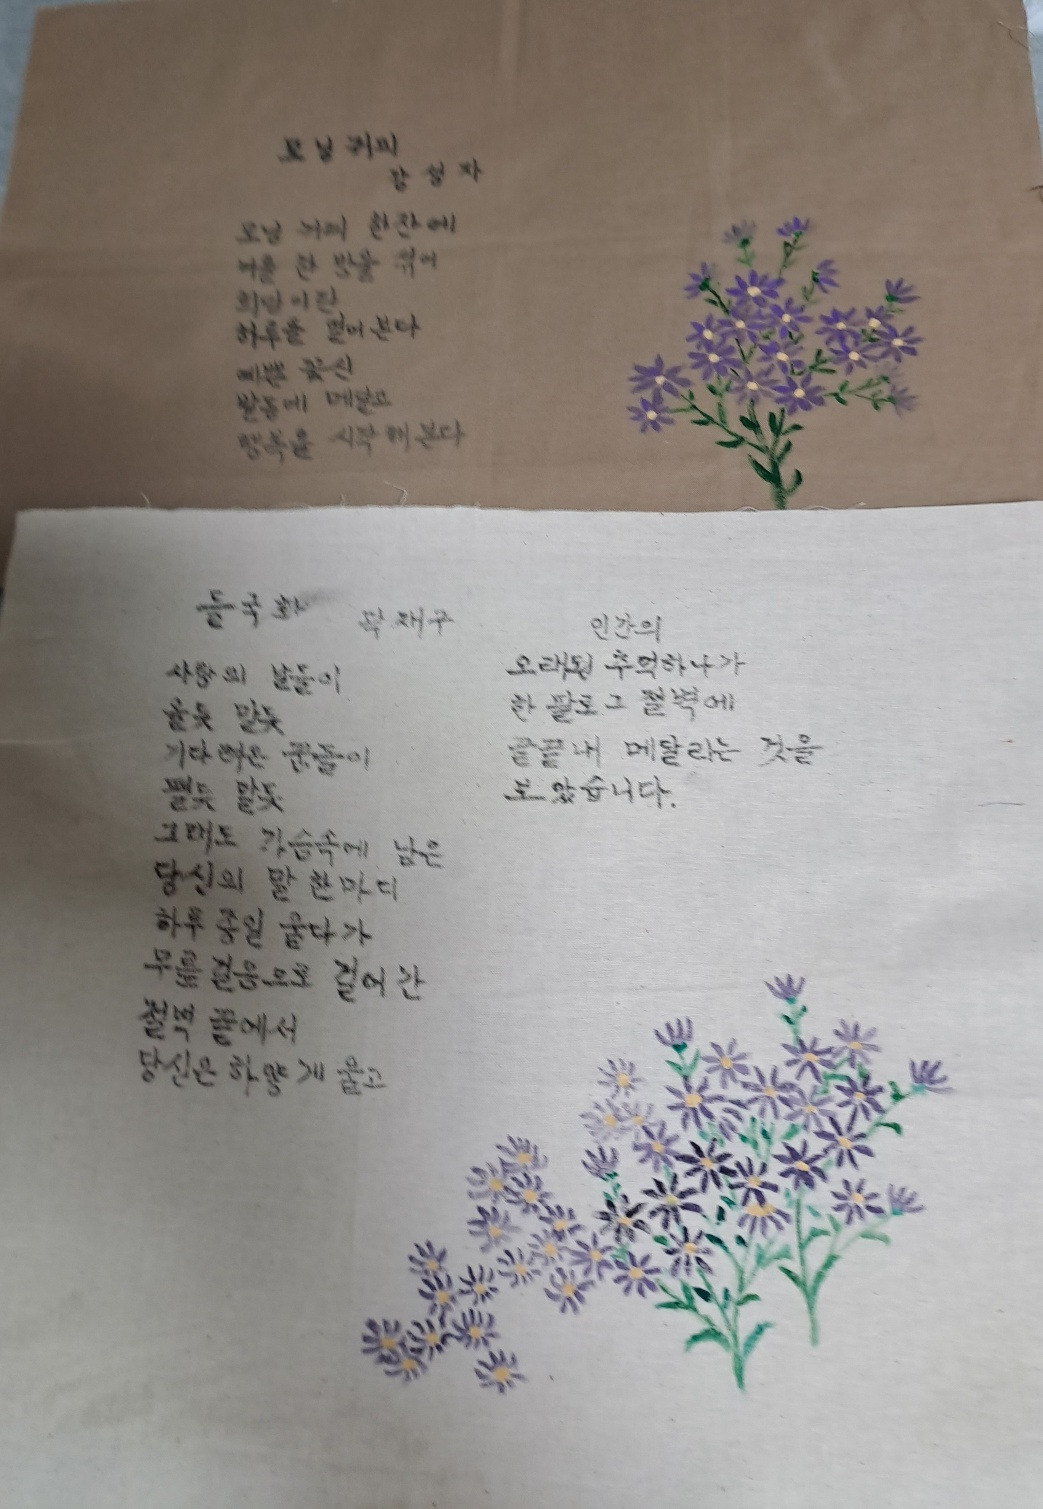 모닝 커피
강성자
모닝 커피 한잔에
여울 한 방울 섞어
희망이란
하루를 열어 본다
예쁜 꽃신
발등에 메달고
행복을 시작 해 본다
들국화 곽재구
사랑의 날들이
올듯 말듯
기다려온 꿈들이
필듯 말듯
그래도 가슴속에 남은
당신의 말 한마디
하루 종일 울다가
무릎 걸음으로 걸어 간
절벽 끝에서
당신은 하얗게 웃고
인간의
오래된 추억하나가
한 팔로 그 절벽에
끝끝내 메달리는 것을
보았습니다.